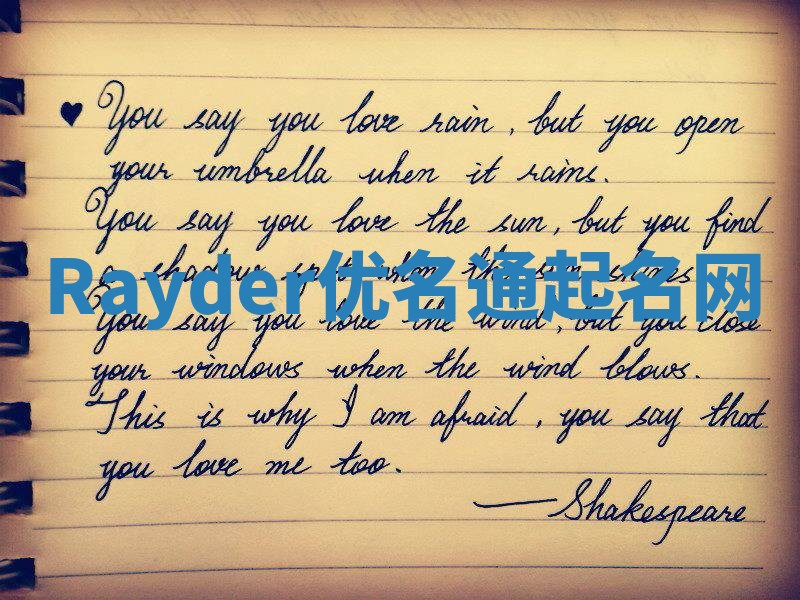 ♥ You say you love rain, but you open
your umbrella when it rains.
You say you love the sun, but you find
a shadow spot when the sun shines
Rayder优名通起名网
You say you love the wind, but you close
your windows when the wind blows.
This is why I am afraid, you say that
you love me too.
—Shakespeare